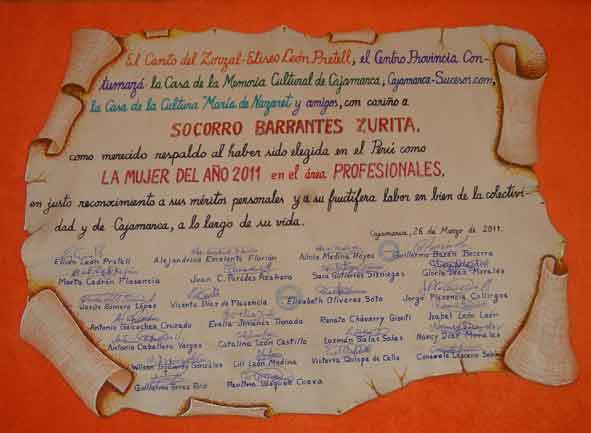 El Canto del Zorzal-Eliseo León Pretell, el Centro Provincia Con-
tumazá la Casa de la Memoria Cultural de Cajamarca, Cajamarca-Sucesos.com,
la Casa de la Cultura María de Nazaret y amigos, con cariño a
SOCORRO BARRANTES ZURITA,
como merecido respaldo al haber sido elegida en el Perú como
LA MUJER DEL AÑO 2011 en el área PROFESIONALES,
en justo reconocimiento a sus méritos personales y a su fructífera labor en bien de la colectivi-
dad y de Cajamarca, a lo largo de su vida.
Cajamarca, 26 de Marzo de 2011.
Eliseo León Pretell Alejandrina Excelente Florián Alicia Medina Hoyos Guillermo Bazán Becerra
Marta Cadrán Plasencia Juan C. Paredes Azañero Sara Gutiérrez Gloria Díaz Morales
Jorge Romero López Vicente Díaz de Plasencia Elizabeth Oliveros Soto Jorge Plasencia
Antonio Goicochea Cruzado Evelia Jiménez Renato Chávarry Isabel León León
Antonio Caballero Vargas Catalina León Castillo Luzmán Salas Salas Nancy Díaz Morales
Wilson Izquierdo González Lili León Medina Victoria Quispe de Celis Consuelo Lezcano
Guillermo Torres Rico Paulino Vásquez Cueva